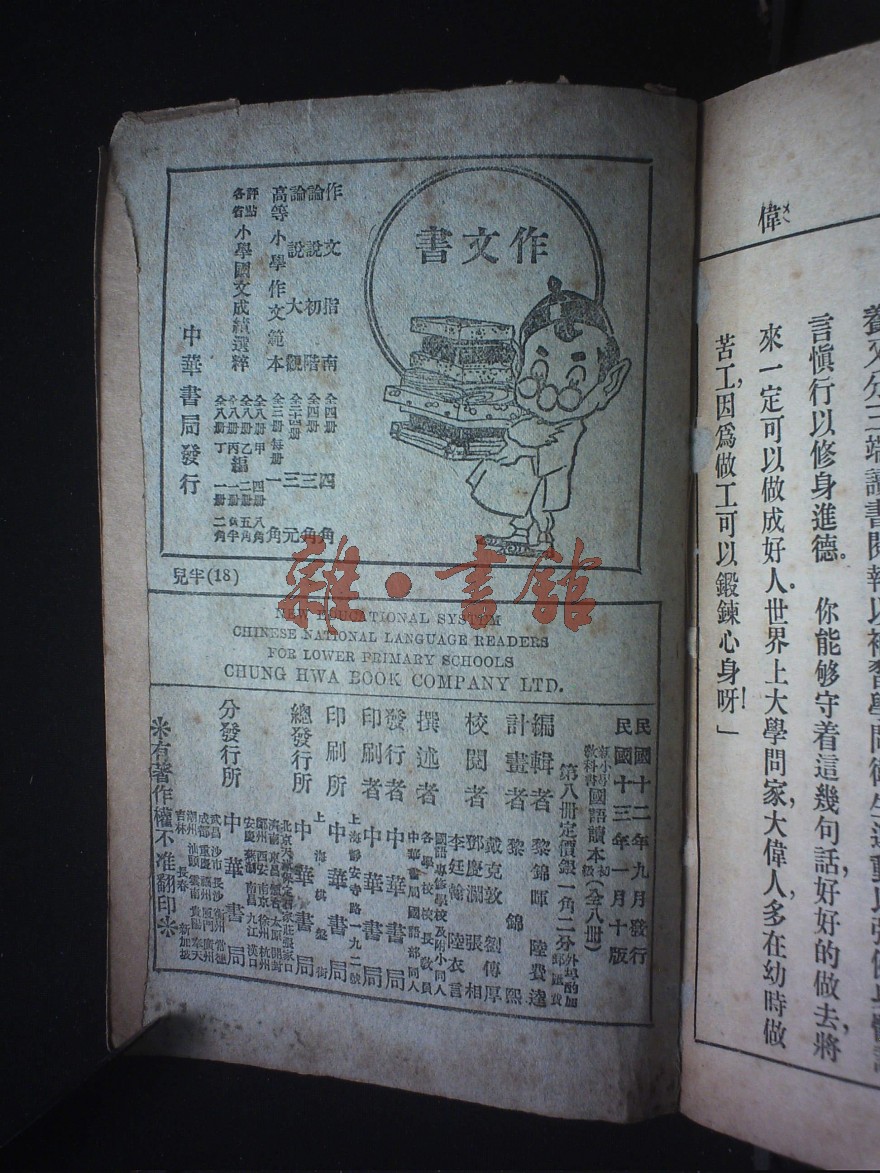 作文書
作文指南 全四册 四角
論說初階 全四册 三角
論說大觀 全二十四册 三元
高等小學作文範本 全三册每册一角
評點各省小學國文成績選粹
全八册甲編四册八角
全八册乙編二册五角
全八册丙編一册
全八册丁編一册二角
中華書局發行
兒半(18)
NEW EDUCATIONAL SYSTEM
CHINESE NATIONAL LANGUAGE READERS
FOR LOWER PRIMARY SCHOOLS
CHUNG HWA BOOK COMPANY LTD.
民國十二年九月發行
民國十三年一月十版
新小學教科書國語讀本初級(全八册)
第八册定價銀一角二分 外埠酌加郵匯費
編輯者 黎錦暉 陸費逵
計畫者 黎錦熙
戴克敦 劉傳厚
校閱者 鄧慶瀾 張相
李廷翰 陸衣言
撰述者 國語專修學校及附小同人
各學校校長教員
中華書局國語部同人
發行者 中華書局
印刷者 中華書局
印刷所 上海靜安寺路一九二號
中華書局
總發行所 上海棋盤街
中華書局
分發行所 中華書局
北京 天津 保定 張家口
濟南 東昌 太原 開封
鄭州 西安 南京 徐州 杭州
安慶 蕪湖 南昌 九江 漢口
武昌 沙市 長沙 衡州 常德
成都 重慶 福州 廈門 廣州
潮州 汕頭 雲南 貴陽 奉天
吉林 長春 新加坡
※有著作權不准翻印※
雜·書館
偉
養又分三端讀書閱報以補習學問衛生運動以強健身體謹
言慎行以修身進德．你能够守着這幾句話好好的做去，將
來一定可以做成好人．世界上大學問家，大偉人，多在幼時做
苦工，因爲做工可以鍛鍊心身呀！」